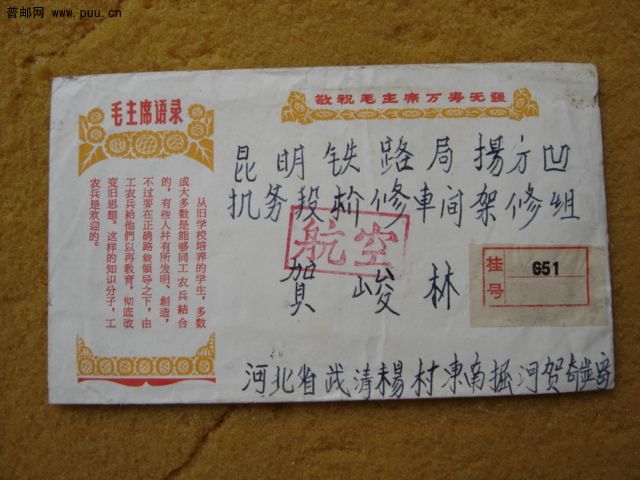 普邮网 www.puu.cn
敬祝毛主席万寿无疆
毛主席语录
从旧学校培养的学生，多数
或大多数是能够同工农兵结合
的，有些人并有所发明、创造，
不过要在正确路线领导之下，由
工农兵给他们以再教育，彻底改
变旧思想。这样的知识分子，工
农兵是欢迎的。
昆明铁路局揚方凹
机务段检修車间架修组
航空
賀峻林
挂号
651
河北省武清杨村東南掘河贺奇